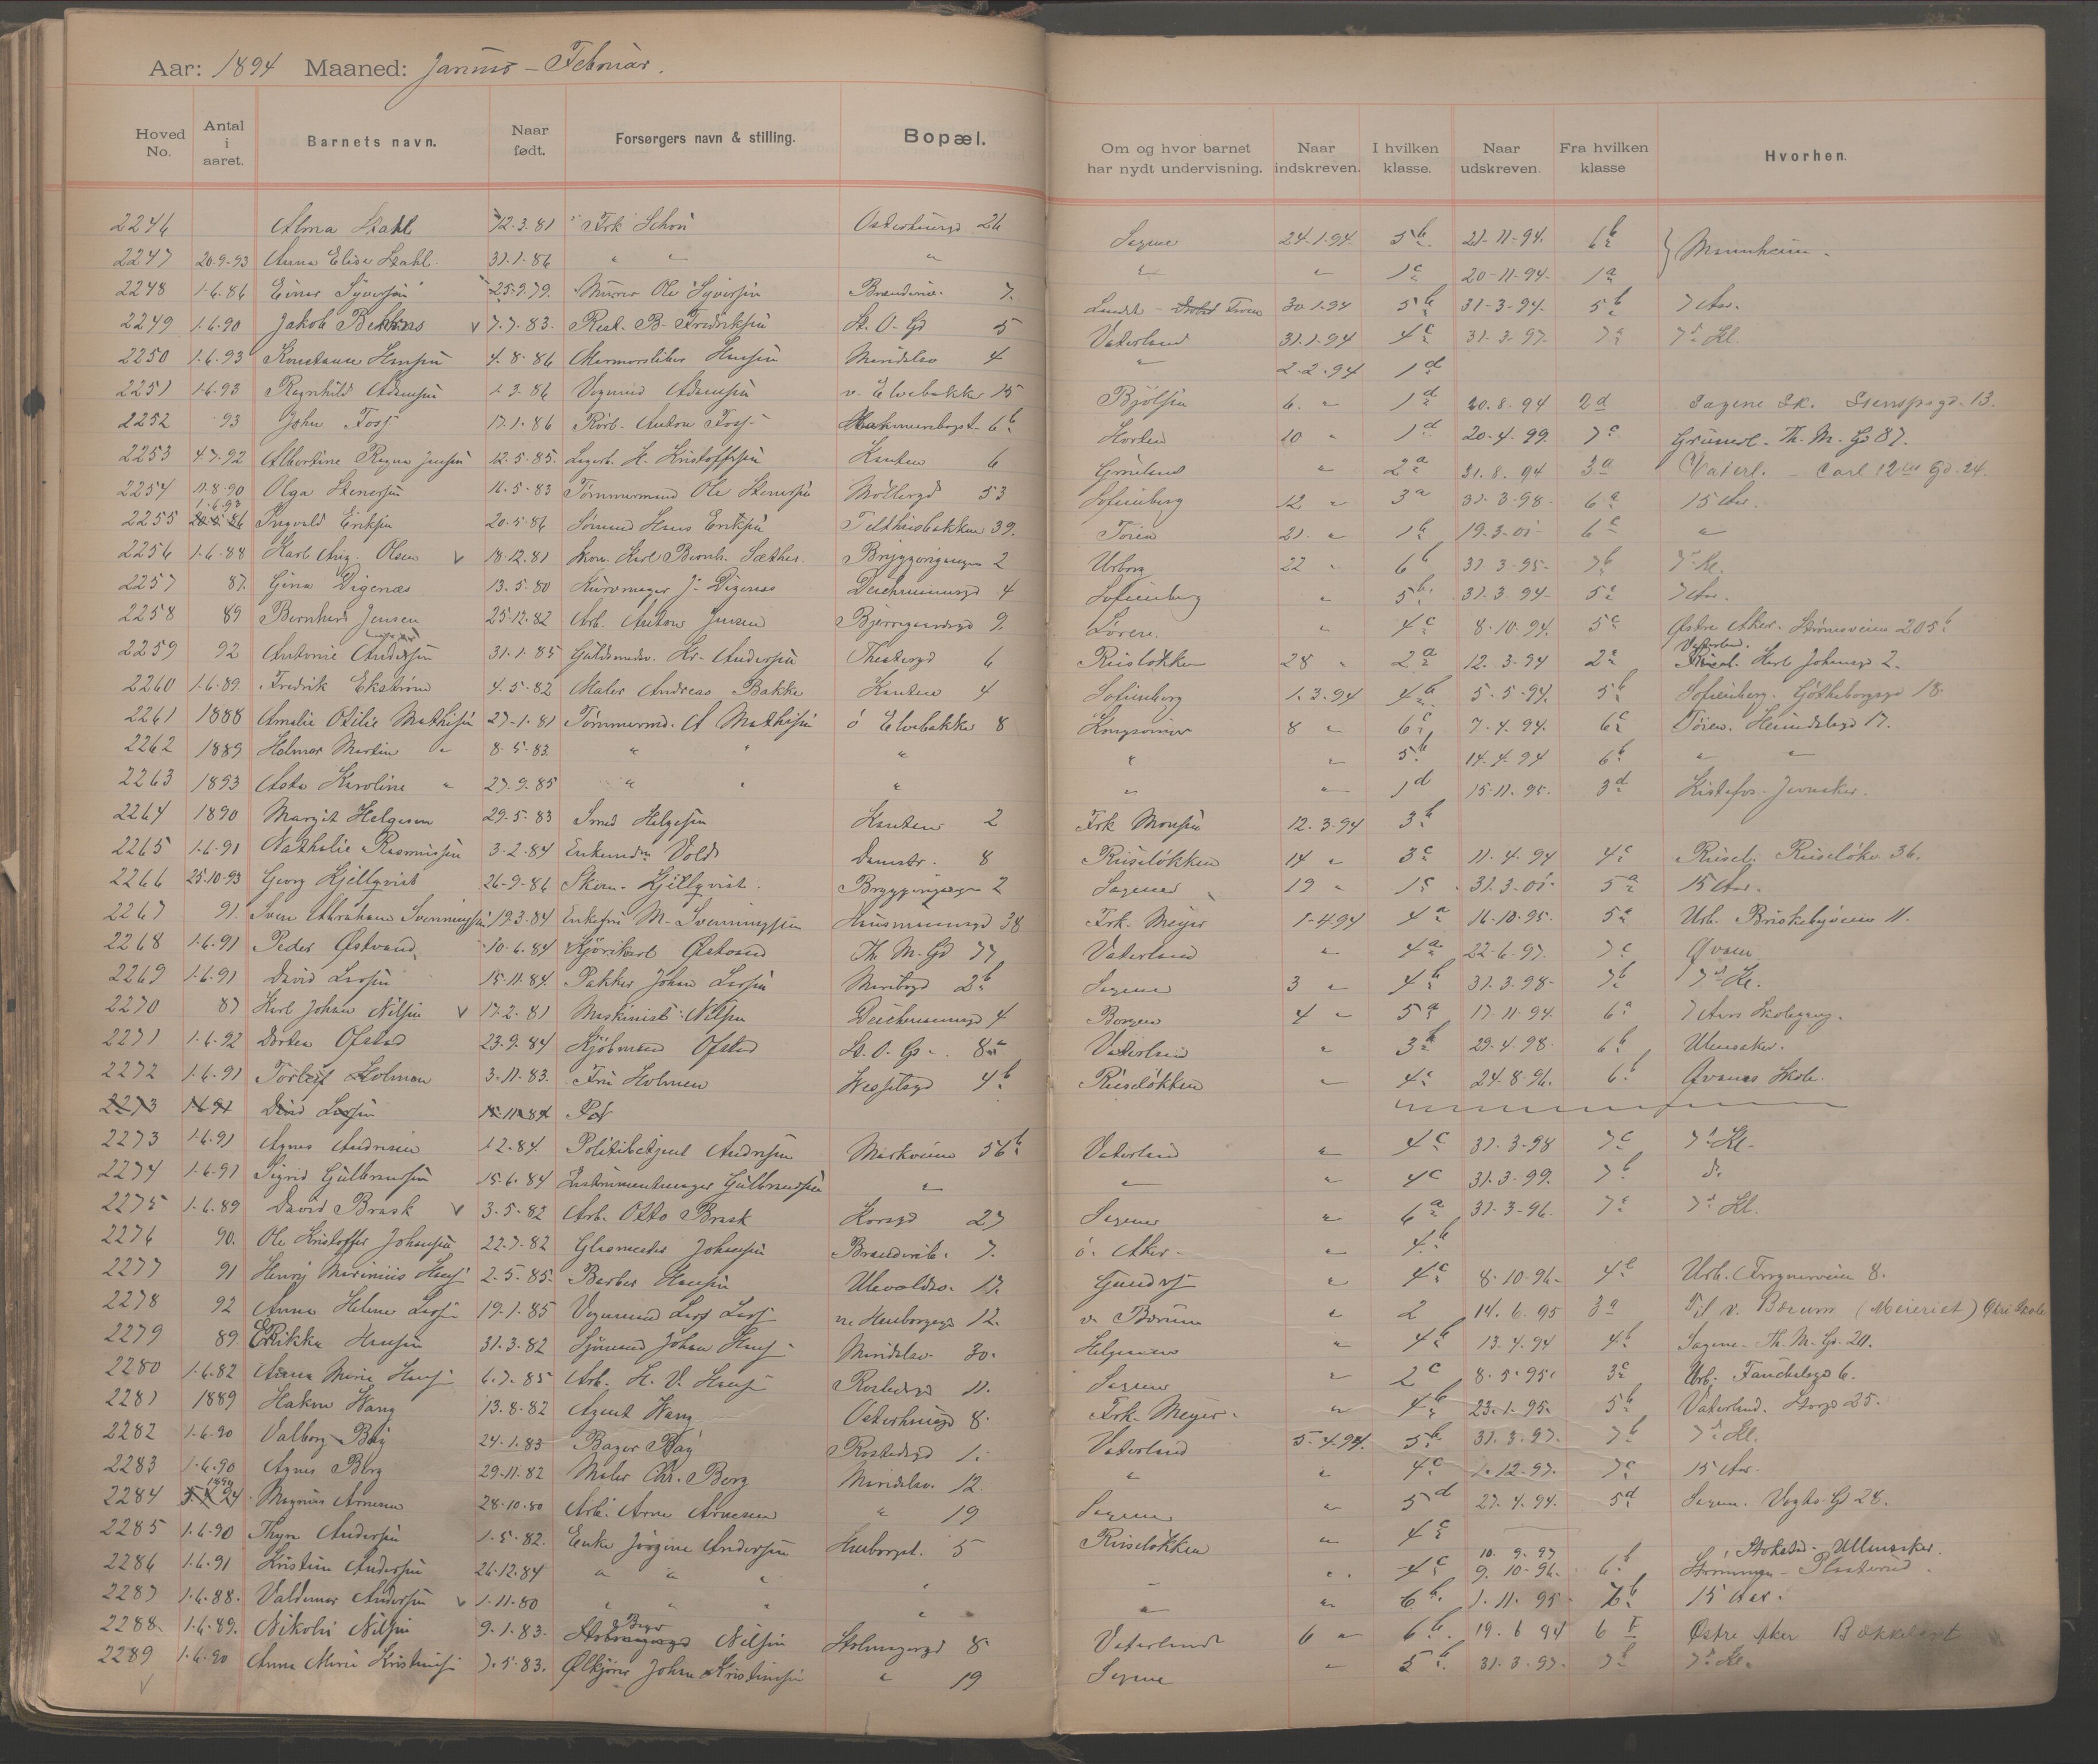 Aar: 1894 Maaned: Januar – Februar.
Hoved No. Antal i aaret. Barnets navn. Naar født. Forsørgers navn & stilling. Bopæl. Om og hvor barnet har nydt undervisning. Naar indskreven. I hvilken klasse. Naar udskreven. Fra hvilken klasse Hvorhen.
2246 Alma Stahl 12.3.81 Frk Schou 26 Sagene 24.1.94. 5 b 21-11-94. 6 b } Mannheim.
2247 20.9.93 Anna Elise Stahl 31.1.86 " " " " " 1 c 20-11-94 1 a
2248 1.6.86 Einar Syversen 25.9.79. Murer Ole Syversen 7. 30.1.94 5 b 31-3-94. 5 b 7 Aar.
2249 1.6.90 Jakob v 7.7.83. Rest. B. Fredriksen St. O. Gd 5 Vaterland 31.1.94 4 c 31.3.97. 7 a 7de Kl.
2250 1.6.93 Konstance Hansen 4.8.86 Marmorsliber Hansen Maridalsv 4 " 2.2.94 1 d
2251 1.6.93 Ragnhild Adamsen 1.3.86 Vognmd Adamsen v. Elvebakke 15 Bjølsen 6. " 1 d 20.8.94 2 d Sagene Sk. Stenspgd. 13.
2252 93 John Foss 17.1.86 Anton Foss 6 b Horten 10 " 1 d 20.4.99. 7 c Grünerl. Th. M. Gd 87.
2253 4.7.92 Albertine Ragna Jensen 12.5.85. H. Kristoffersen Kanten 6 Grønland " 2 a 31.8.94 3 a Vaterl. – Carl 12tes Gd. 24.
2254 11.8.90 Olga Stenersen 16.5.83 Tømmermand Ole Stenersen Møllergd 53 Sofienberg 12 " 3 a 31.3.98. 6 a 15 Aar.
2255 1.6.93 Ingvald Eriksen 20.5.86 Sømand Hans Eriksen Telthusbakken 39. Tøien 21. " 1 b 19.3.01 6 c "
2256 1.6.88 Karl Aug. Olsen v 18.12.81 Karl Bernh. Sæther 2 Uranborg 22 " 6 b 31.3.95. 7 b 7de Kl.
2257 87. Gina Digenæs 13.5.80 Kurvmager J. Digenæs Deichmannsgd 4 Sofienberg " 5 b 31.3.94 5 c 7 Aar.
2258 89 Bernhard Jensen 25.12.82 Arb. Anton Jensen Bjerregaardsgd 9. Løren. " 4 c 8.10.94. 5 c Østre Aker. Strømsveien 205 b
2259 92 Antonie Andersen 31.1.85 Guldsmedsv. Kr. Andersen Theatergd 6 Ruseløkken 28 " 2 a 12.3.94 2 a Vaterland. Karl Johansgd 2.
2260 1.6.89. Fredrik Ekstrøm 4.5.82 Maler Andreas Bakke Kanten 4 Sofienberg 1.3.94 4 b 5.5.94. 5 b Sofienberg. Gøteborggd 18.
2261 1888 Amalie Otilie Mathisen 27.1.81 Tømmermd. A Mathisen ö Elvebakke 8 Kongsvinger 8 " 6 c 7.4.94. 6 c Tøien. Heimdalsgd 17.
2262 1889 Halmar Martin " 8.5.83. " " " " " 5 b 14.4.94 6 b " "
2263 1893 Asta Karoline " 27.9.85 " " " " " 1 d 15.11.95. 3 d
2264 1890 Margit Helgesen 29.5.83 Smed Helgesen Kanten 2 Frk Monsen 12.3.94 3 b
2265 1.6.91 Nathalie Rasmussen 3.2.84 Enkemd. Vold Damstr. 8 Ruseløkken 14 " 3 c 11.4.94 4 c Rusel. Ruseløkv 36.
2266 25.10.93 Georg Kjellqvist 26.9.86 Skom. Kjellqvist. 2 Sagene 19 " 1 c 31.3.01. 5 a 15 Aar.
2267 91. Sven Abraham Svenningsen 19.3.84 Enkefru M. Svenningsen Husmannsgd 38 Frk. Meyer 1.4.94 4 a 16.10.95. 5 a Urb. Briskebyveien 11.
2268 1.6.91 Peder Østvand 10.6.84 Kjørekarl Østvand Th. M. Gd 77 Vaterland " 4 a 22.6.97. 7 c Qvæn.
2269 1.6.91 David Larsen 15.11.84. Pakker Johan Larsen Maribogd 2 b Sagene 3 " 4 b 31.3.98. 7 b 7de Kl.
2270 87 Karl Johan Nilsen v 17.2.81 Maskinist Nilsen Deichmannsgd 4 Borgen 4 " 5 a 17.11.94. 6 a 7 Aars Skolegang.
2271 1.6.92 Dorthea Ofstad 23.9.84 Kjøbmand Ofstad St. O. Gd. 8 a Vaterland " 3 b 29.4.98. 6 b Ullensaker.
2272 1.6.91 Torleif Holmen 3.11.83. Fru Holmen Wesselsgd 4 b Ruseløkken " 4 c 24.8.96. 6 b Qvænes Skole.
2273 1.6.91 David Larsen 15.11.84 Pak
2273 1.6.91 Agnes Andresen 1.2.84. Politibetjent Andresen Markveien 56 b Vaterland " 4 c 31.3.98 7 c 7de Kl.
2274 1.6.91 Sigrid Gulbrandsen 15.6.84 Instrumentmager Gulbrandsen " " " 4 c 31.3.99. 7 b do
2275 1.6.89 David Brask v 3.5.82 Arb. Otto Brask Korsgd 27 Sagene " 6 a 31.3.96. 7 a 7de Kl.
2276 90. Ole Kristoffer Johansen 22.7.82 Glasmester Johansen 7. ö. Aker " 4 b
2277 91 Henry Marinius Hansen 2.5.85. Barber Hansen Ullevoldsv. 17. " 4 c 8.10.96 4 b Urb. Frognerveien 8.
2278 92 Anna Helene Larsen 19.1.85 Vognmand Lars Larsen 12. v. Bærum " 2 14.6.95 3 a Til v. Bærum (Meieriet)
2279 89 Erikka Hansen 31.3.82 Sjømand Johan Hansen Maridalsv. 30. Helgesens " 4 b 13.4.94 4 b Sagene. Th. M. Gd. 20.
2280 1.6.82 Anna Marie Hansen 6.7.85 Arb. H. V. Hansen Rostedsgd 11. Sagene " 2 c 8.5.95. 3 c Urb. Fauchaldsgd 6.
2281 1889 Hakon Wang 13.8.82 Agent Wang Osterhausgd 8. Frk. Meyer. " 4 b 23.1.95. 5 b Vaterland. Storgd 25.
2282 1.6.90 Valborg Bay 24.1.83 Bager Bay Rostedsgd 1. Vaterland 5.4.94. 5 b 31.3.97. 7 b 7de Kl.
2283 1.6.90 Agnes Berg 29.11.82 Maler Chr. Berg Maridalsv. 12. " " 4 c 1.12.97. 7 c 15 Aar
2284 1894 Magnus Arnesen 28.10.80 Arb. Arne Arnesen " 19 Sagene " 5 d 27.4.94. 5 d Sagene. Vogts Gd 28.
2285 1.6.90 Thyra Andersen 1.5.82. Enke Jørgine Andersen 5 Ruseløkken " 4 c
2286 1.6.91 Kristian Andersen 26.12.84 " " " " " 4 c 10.9.97 9.10.96. 6 b Ullensaker.
2287 1.6.88. Valdemar Andersen v 1.11.80 " " " " " 6 b 1.11.95 7 b 15 Aar.
2288 1.6.89. Nikolai Nilsen 9.1.83. Bager Nilsen 8 Vaterland 6 " 6 b 19.6 94 6 Østre Aker Bækkelaget
2289 1.6.90 Anna Marie Kristiansen 7.5.83. Ølkjører Johan Kristiansen " 19 Sagene " 5 b 31.3.97. 7 b 7de Kl.